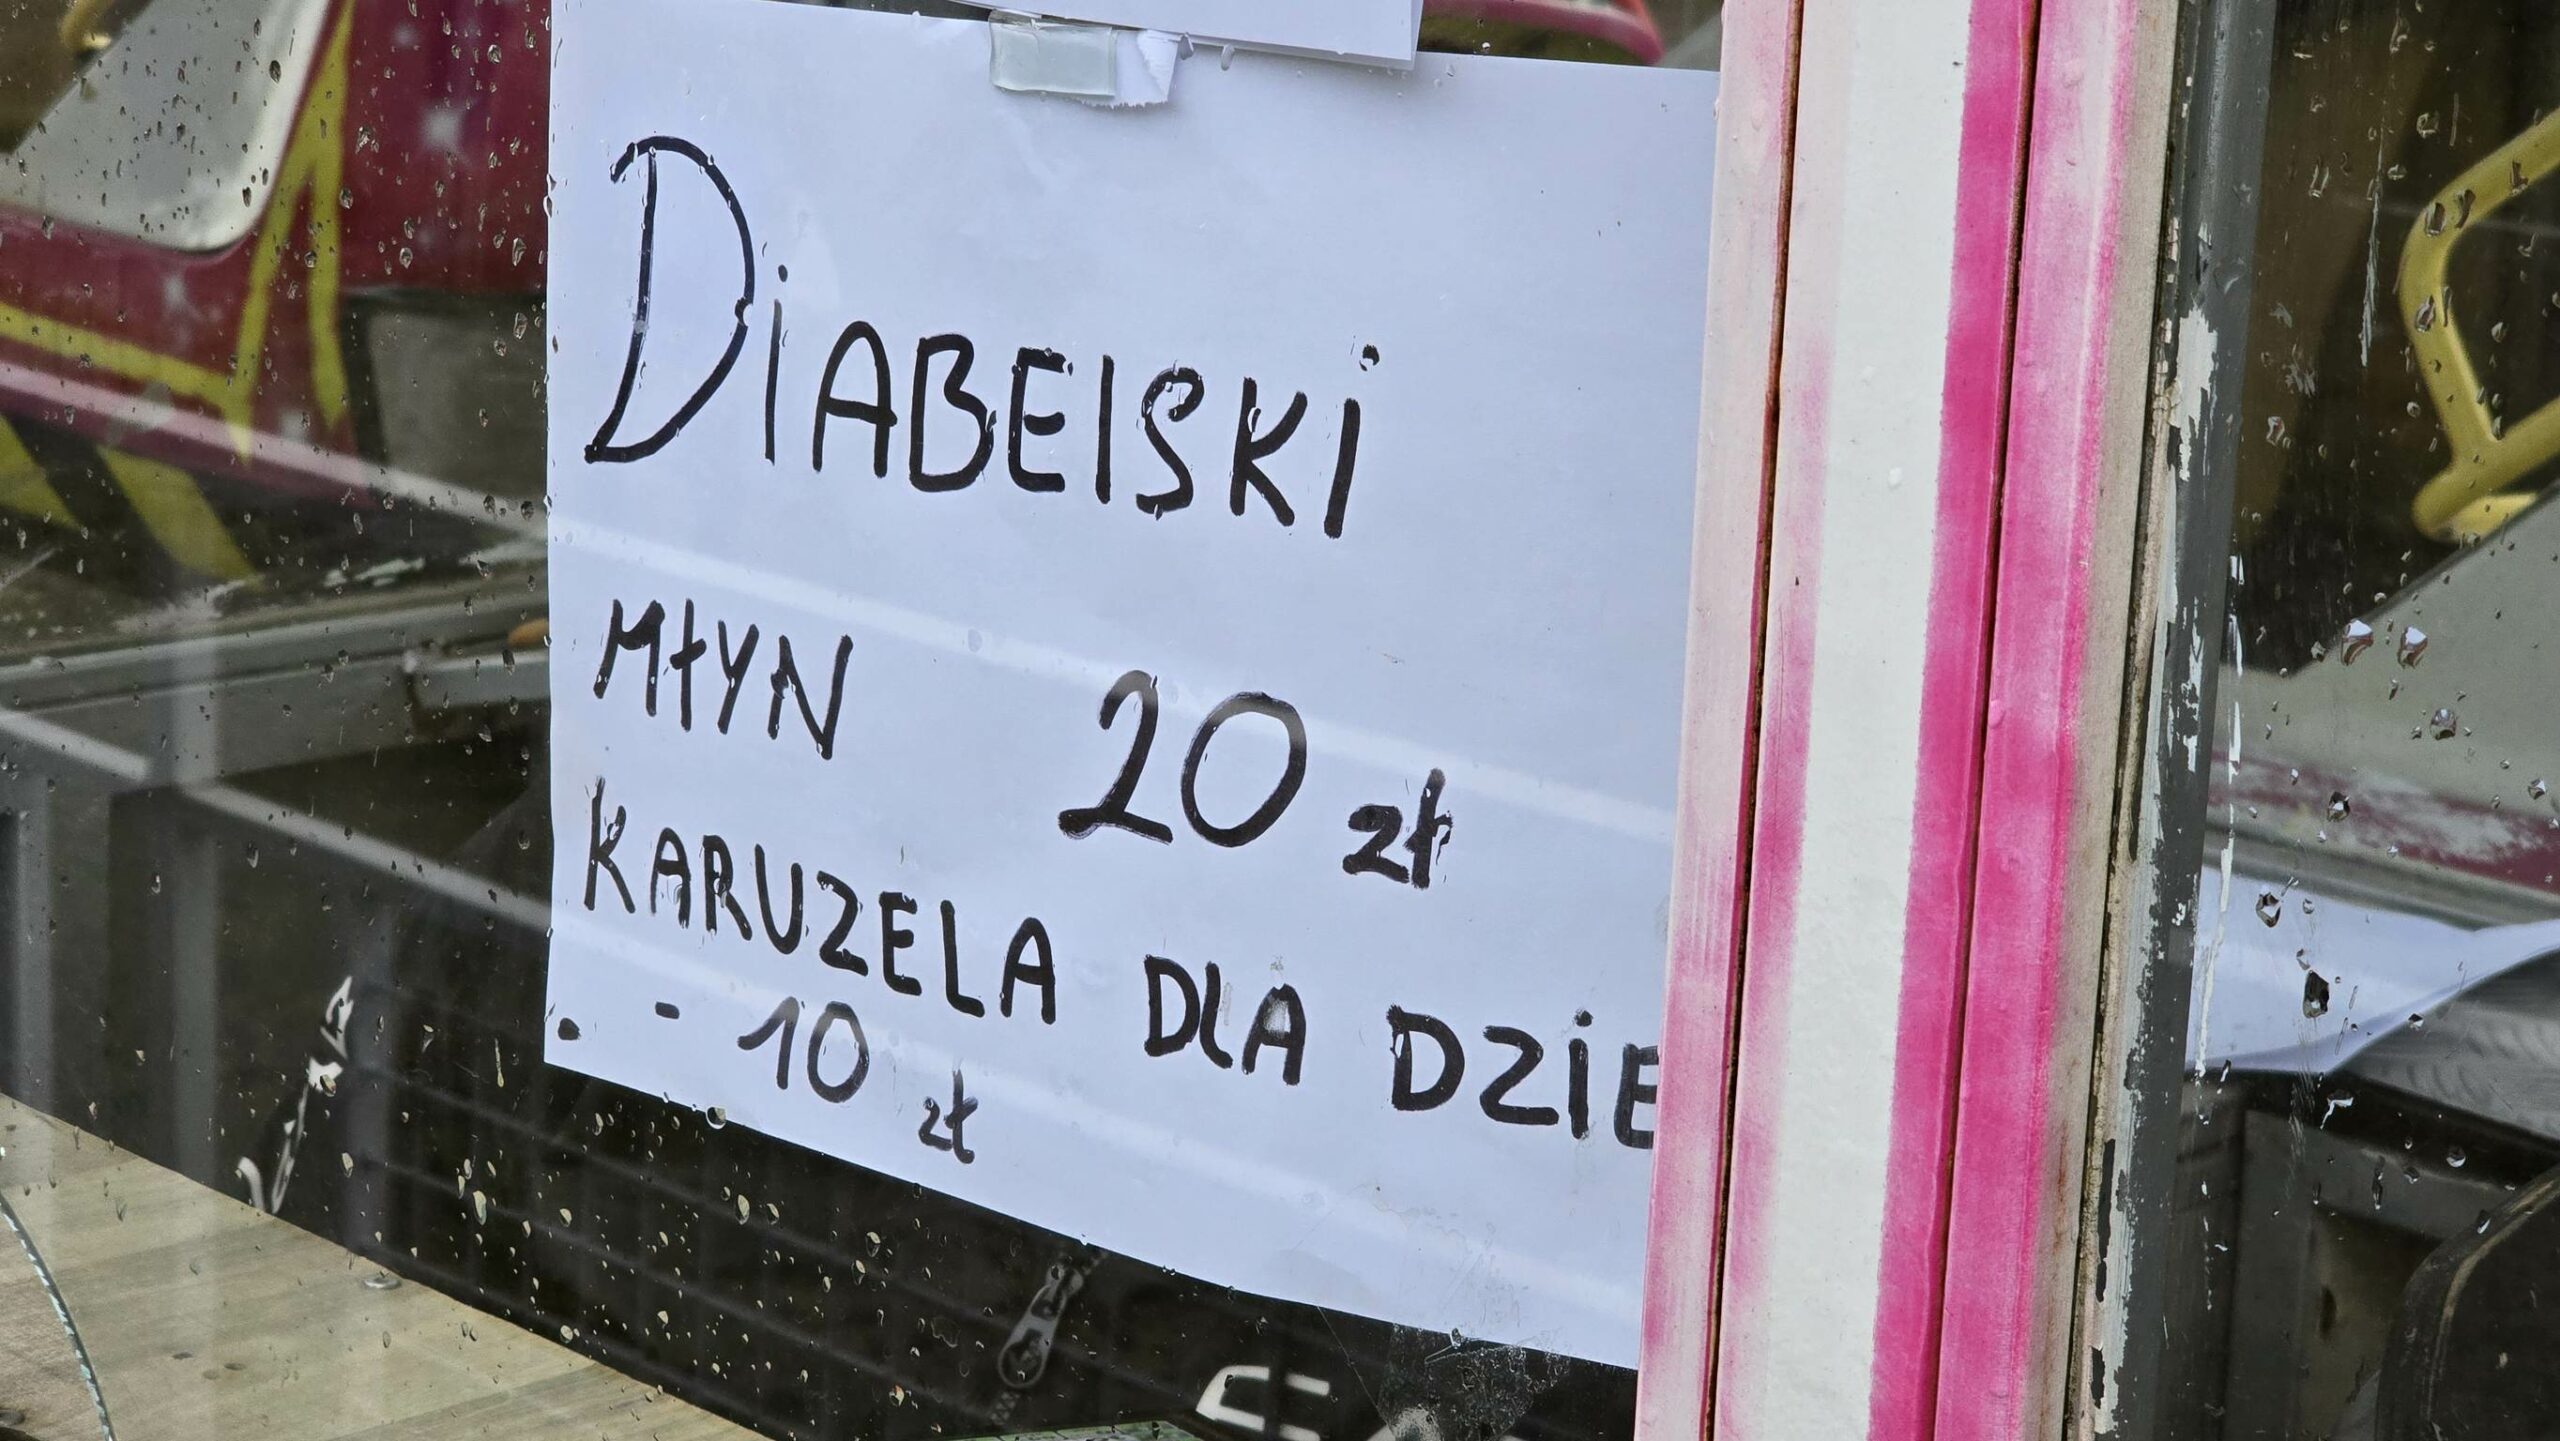 DiABElSKi
MŁYN 20 zł
KARUZELA DLA DZiE
- 10 zł